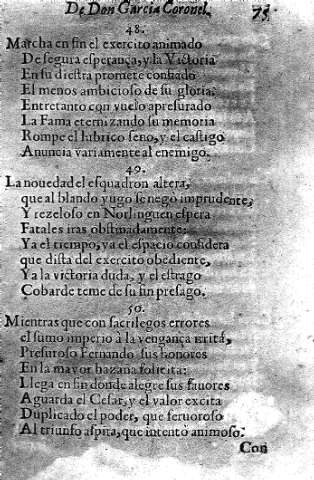 De Don Garcia Coronel. 75
48.
Marcha en fin el exercito animado
De segura esperança, y la Victoria
En su diestra promete confiado
El menos ambicioso de su gloria.
Entretanto con vuelo apresurado
La Fama eternizando su memoria
Rompe el hibrico seno, y el castigo
Anuncia variamente al enemigo.
49.
La nouedad el esquadron altera,
que al blando yugo se negò imprudente,
Y rezeloso en Norlinguen espera
Fatales iras obstinadamente:
Ya el tiempo, ya el espacio considera
que dista del exercito obediente,
Ya la victoria duda, y el estrago
Cobarde teme de su fin presago.
50.
Mientras que con sacrilegos errores
el sumo imperio à la vengança irrita,
Presuroso Fernando sus honores
En la mayor hazaña solicita:
Llega en fin donde alegre sus fauores
Aguarda el Cesar, y el valor excita
Duplicado el poder, que feruoroso
Al triunfo aspira, que intentò animoso.
Con